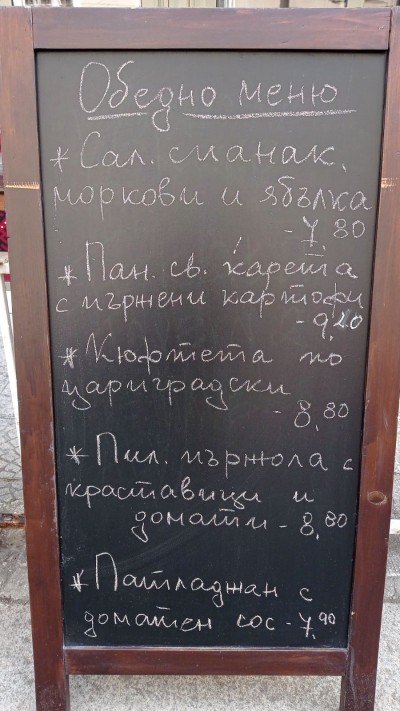 Обедно меню
* Сал. спанак,
моркови и ябълка
- 7,80
* Пан. св. карета
с пържени картофи
- 9,20
* Кюфтета по
цариградски
- 8,80
* Пил. пържола с
краставици и
домати - 8,80
* Патладжан с
доматен сос - 7,90